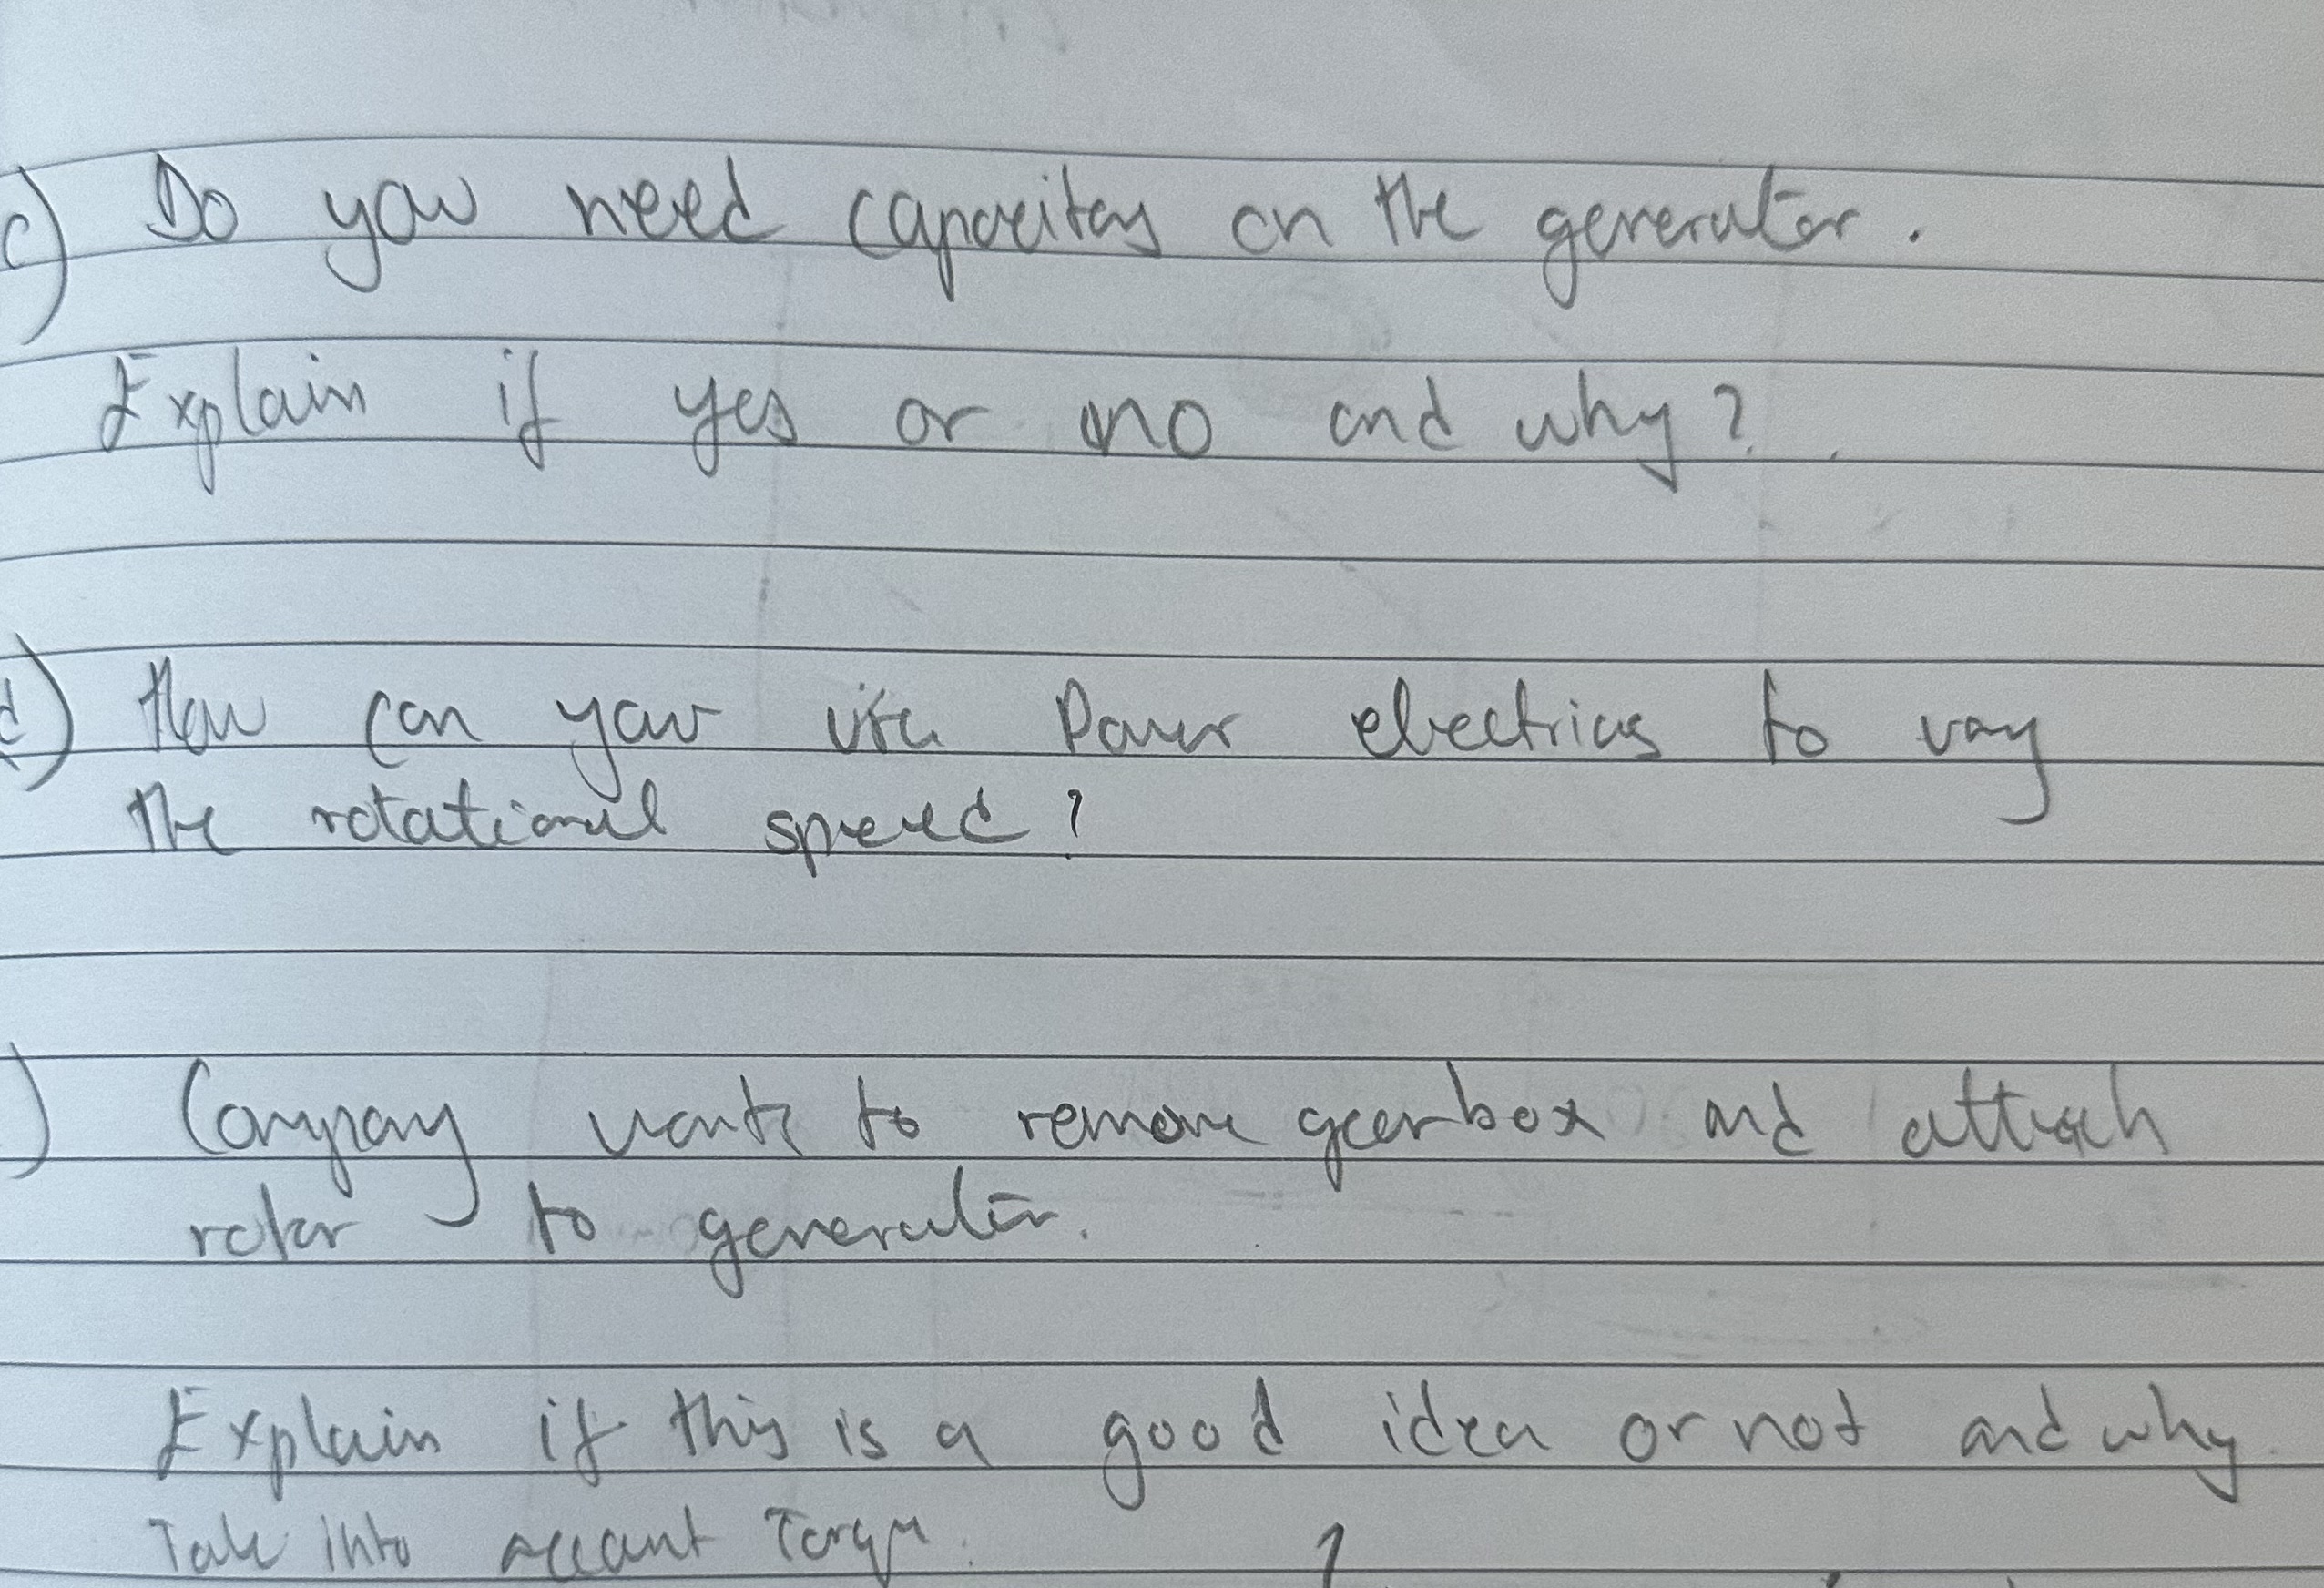 c) Do you need capacitors on the generator.
Explain if yes or no and why?
d) How can you use Power electrics to vary
the rotational speed?
) Company wants to remove gearbox and attach
rotor to generator.
Explain if this is a good idea or not and why
Take into account Torque.